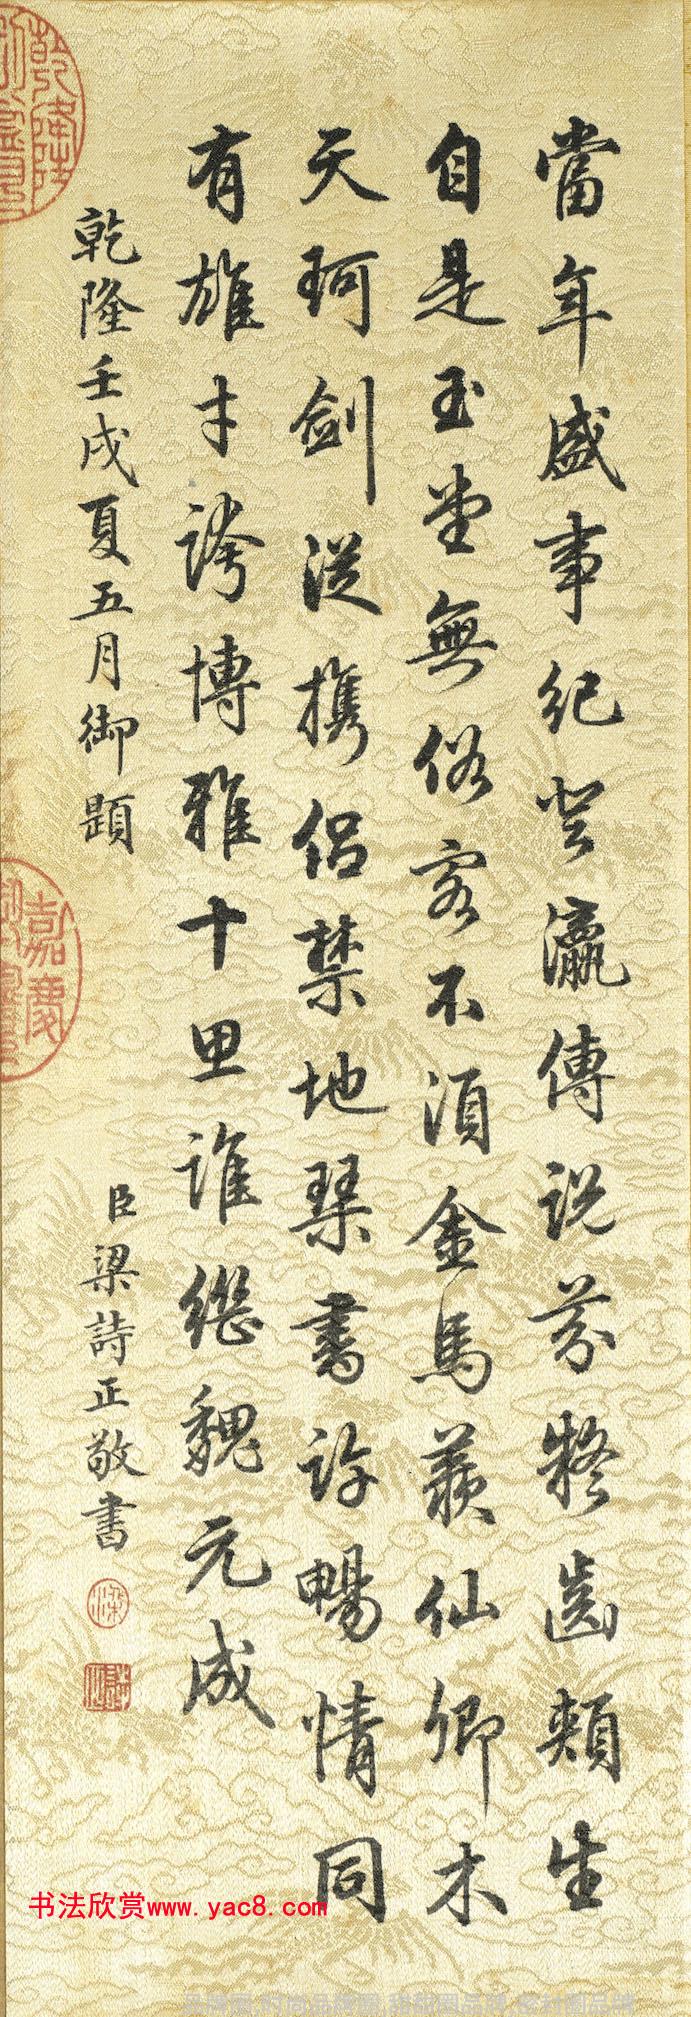 當年盛事紀登瀛傳說芬凝齒頰生
自是玉堂無俗客不須金馬羨仙卿木
天珂劍從携侶禁地琴書許暢情同
有雄才誇博雅十思誰繼魏元成
乾隆壬戌夏五月御題
臣梁詩正敬書
乾隆
嘉慶
书法欣赏www.yac8.com